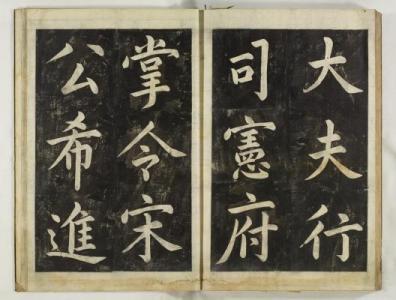 大夫行
司憲府
掌令宋
公希進